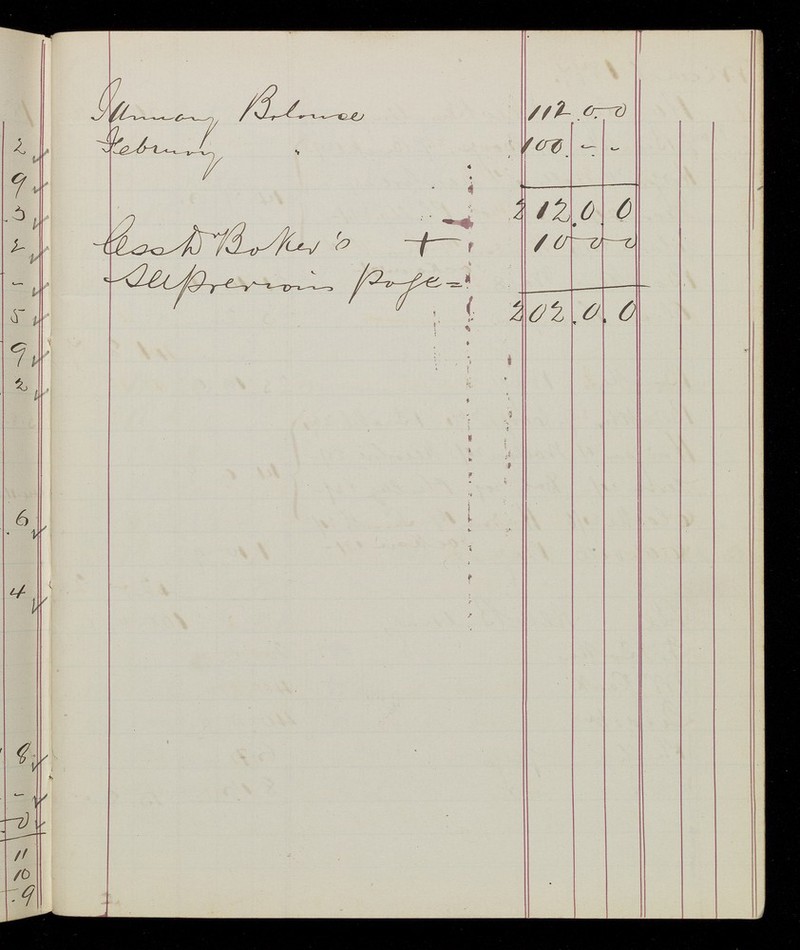 2
9
3
2
-
5
9
2
6
4
8
-
0
11
10
.9
January Balance 112.0.0
February " 100.-.-
212.0.0
Less Dr Baker's + 10 0 0
See previous page =
202.0.0